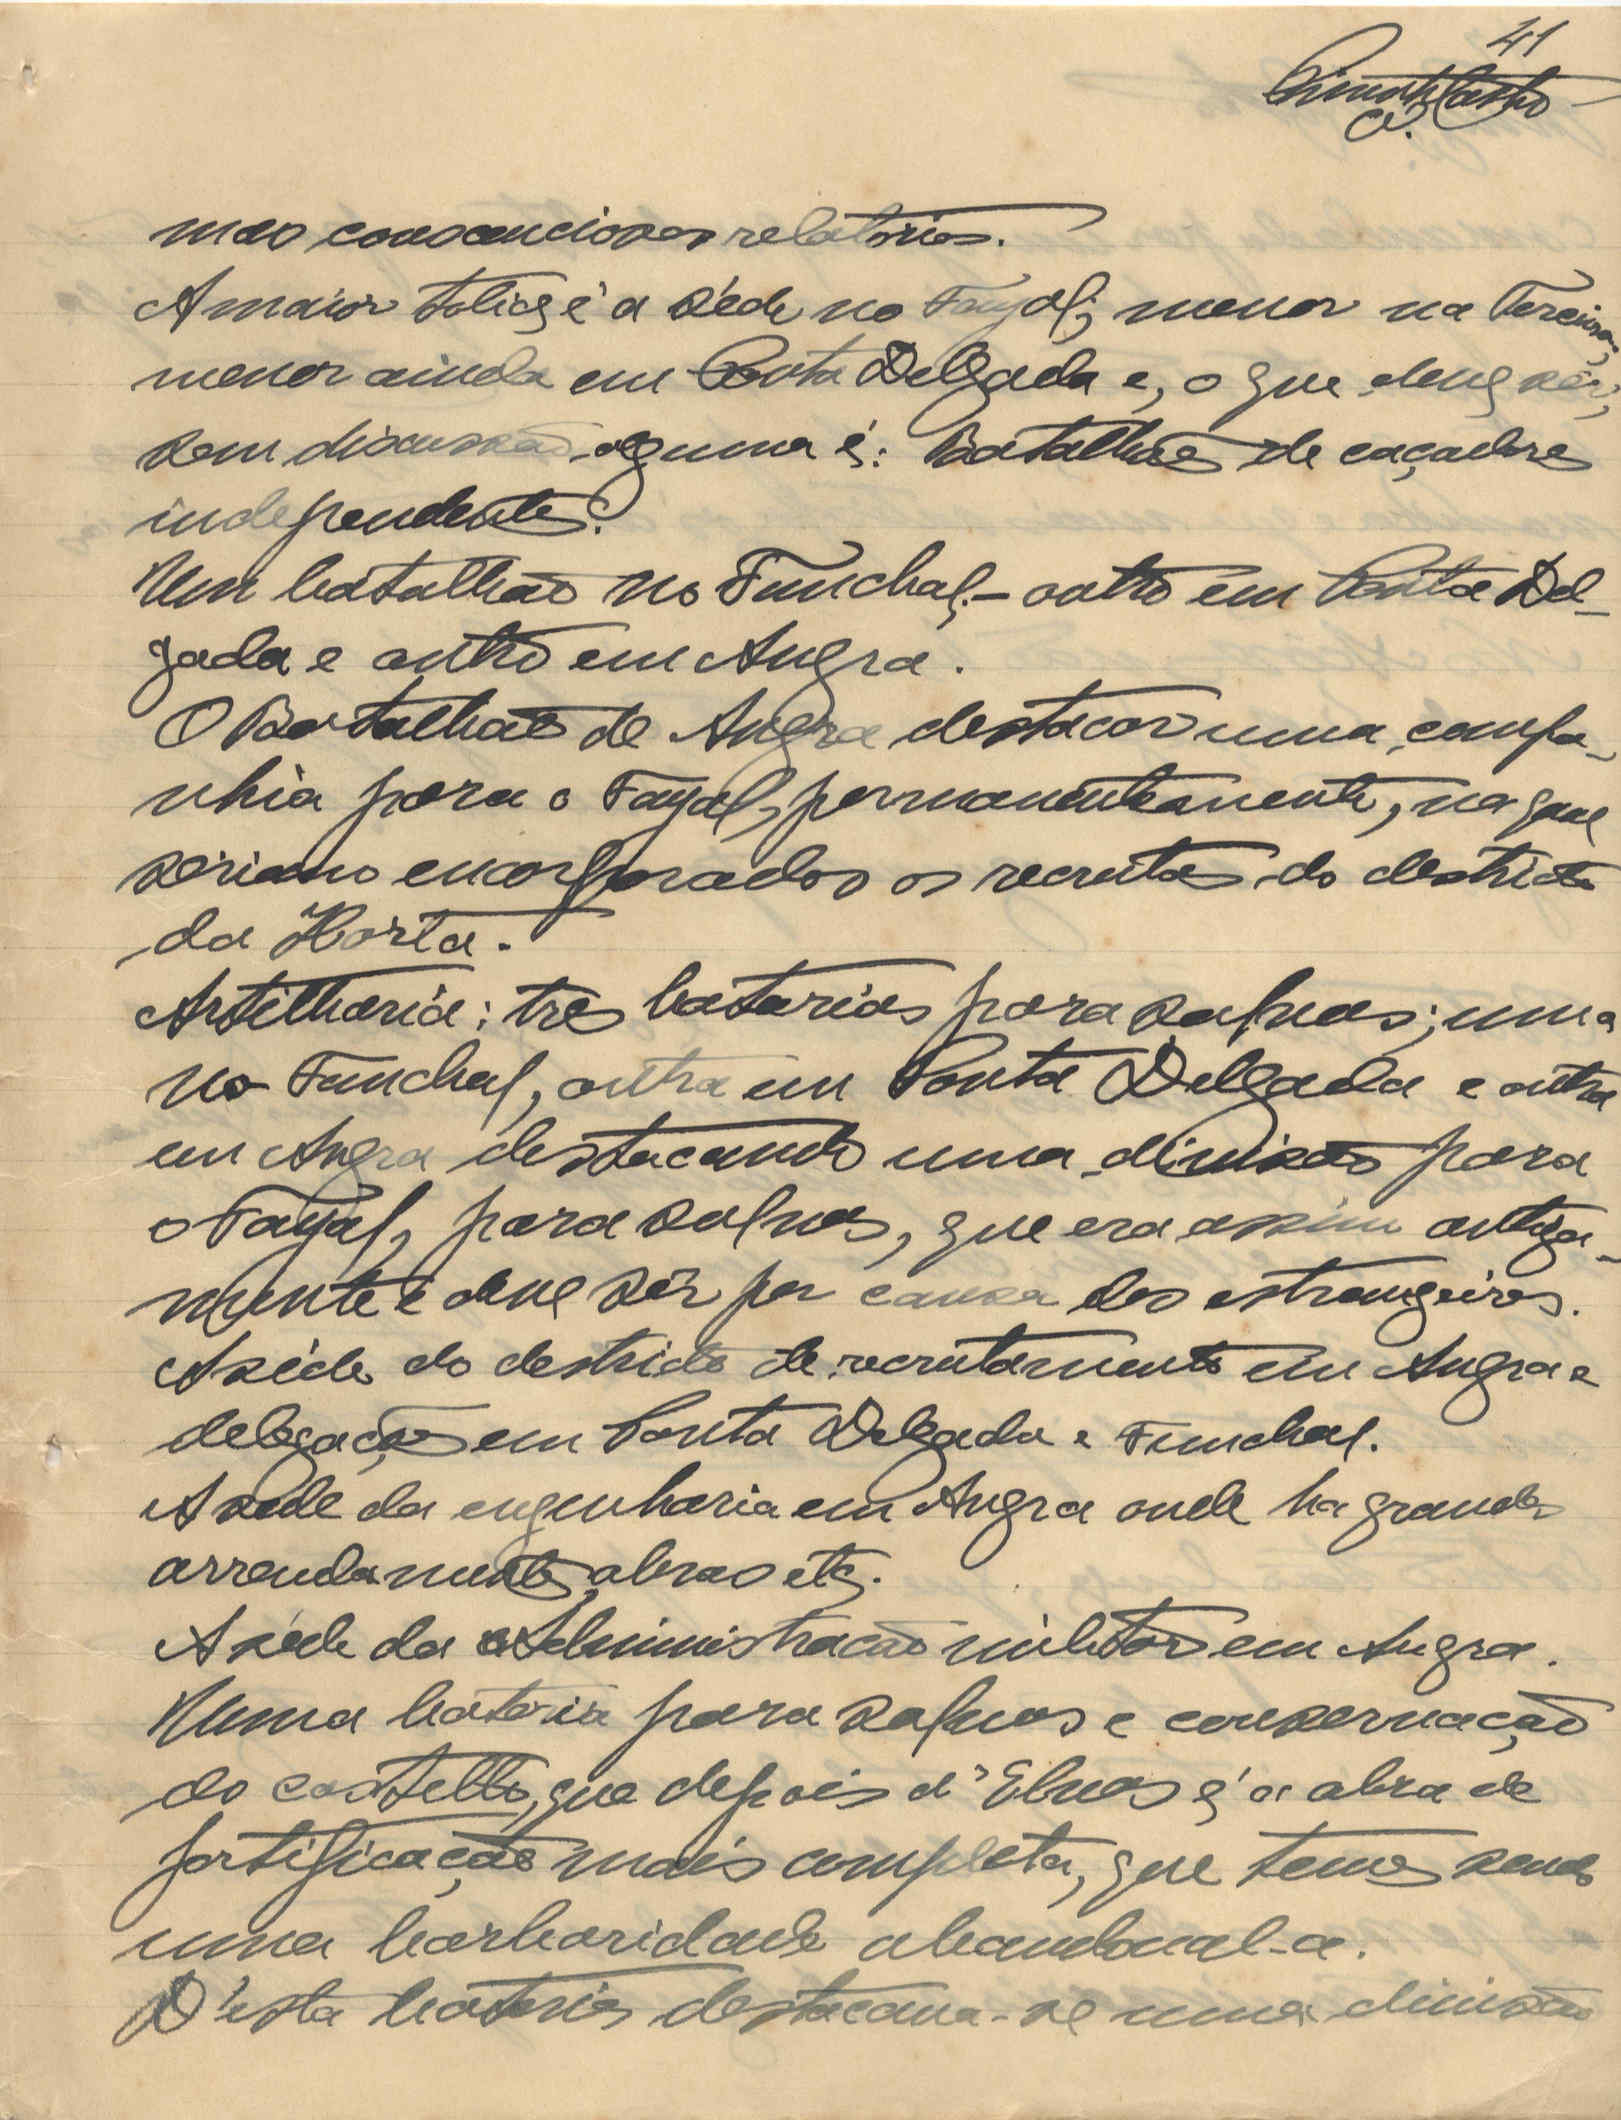 41
Pimenta Castro
mas consccenciosos relatorios.
A maior tolice é a séde no Fayal; menor na Terceira,
menor ainda em Ponta Delgada e, o que deve sêr,
sem discussão alguma é: Batalhões de caçadores
independentes.
Um batalhão no Funchal; – outro em Ponta Del-
gada e outro em Angra.
O Batalhão de Angra destacar uma compa-
nhia para o Fayal, permanentemente, na qual
seriam encorporados os recrutas do destricto
da Horta.
Artilharia: tres batarias para salvas; uma
no Funchal, outra em Ponta Delgada e outra
em Angra destacando uma divisão para
o Fayal, para salvas, que era assim antiga-
mente e deve sêr por causa dos estrangeiros.
A séde do destricto de recrutamento em Angra e
delegações em Ponta Delgada e Funchal.
A séde da engenharia em Angra onde ha grandes
arrendamentos, obras etc.
A séde da Administração militar em Angra.
Uma bataria para salvas e conservação
do castello, que depois d'Elvas é a obra de
fortificação mais completa, que temos sendo
uma barbaridade abandonal-a.
D'esta bataria destacava-se uma divisão